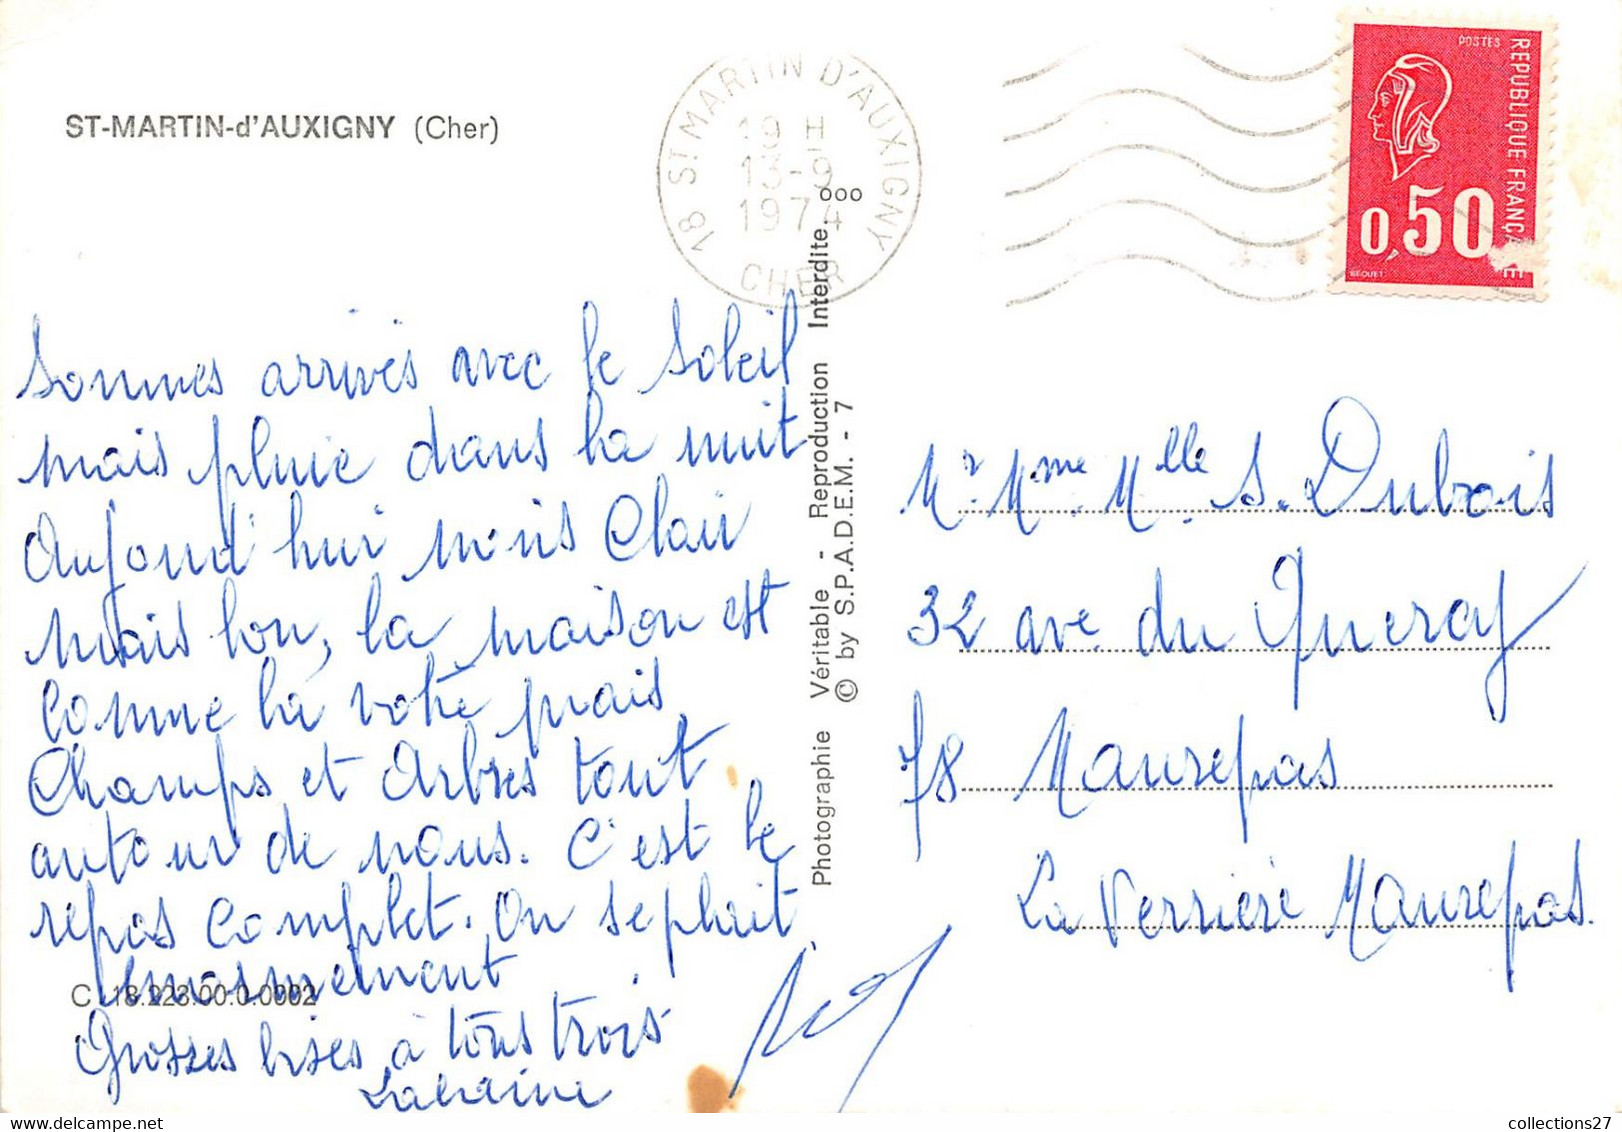 ST-MARTIN-d'AUXIGNY (Cher)
18 ST MARTIN D'AUXIGNY
19 H
13-9
1974
CHER
POSTES
REPUBLIQUE FRANÇAISE
0,50
BEQUET
Sommes arrivés avec le soleil
mais pluie dans la nuit
Aujourd'hui moins Clair
mais bon, la maison est
Comme la votre mais
Champs et Arbres tout
autour de nous. C'est le
repos Complet. On se plait
énormement
C 18.223.00.0.0002
Grosses bises à tous trois
ooo
Photographie Véritable - Reproduction Interdite
© by S.P.A.D.E.M. - 7
Mr. Mme. Mlle. S. Dubois
32 ave. du Quercy
78 Maurepas
La Verrière Maurepas.
collections27